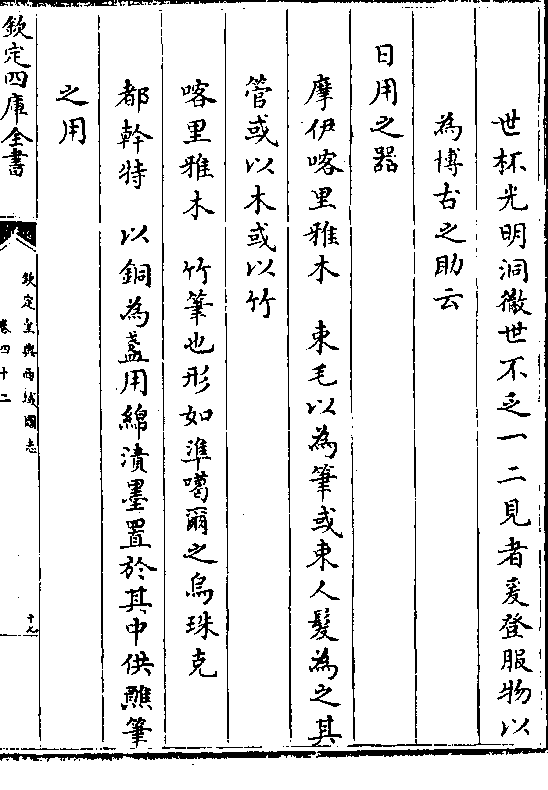 世杯光明洞徹世不乏一二見者爰登服物以
為博古之助云
日用之器
摩伊喀里雅木　束毛以為筆或束人髮為之其
管或以木或以竹
喀里雅木　竹筆也形如準噶爾之烏珠克
都幹特　以銅為盞用綿漬墨置於其中供蘸筆
之用
欽定四庫全書
欽定皇輿西域圖志
卷四十二
十九